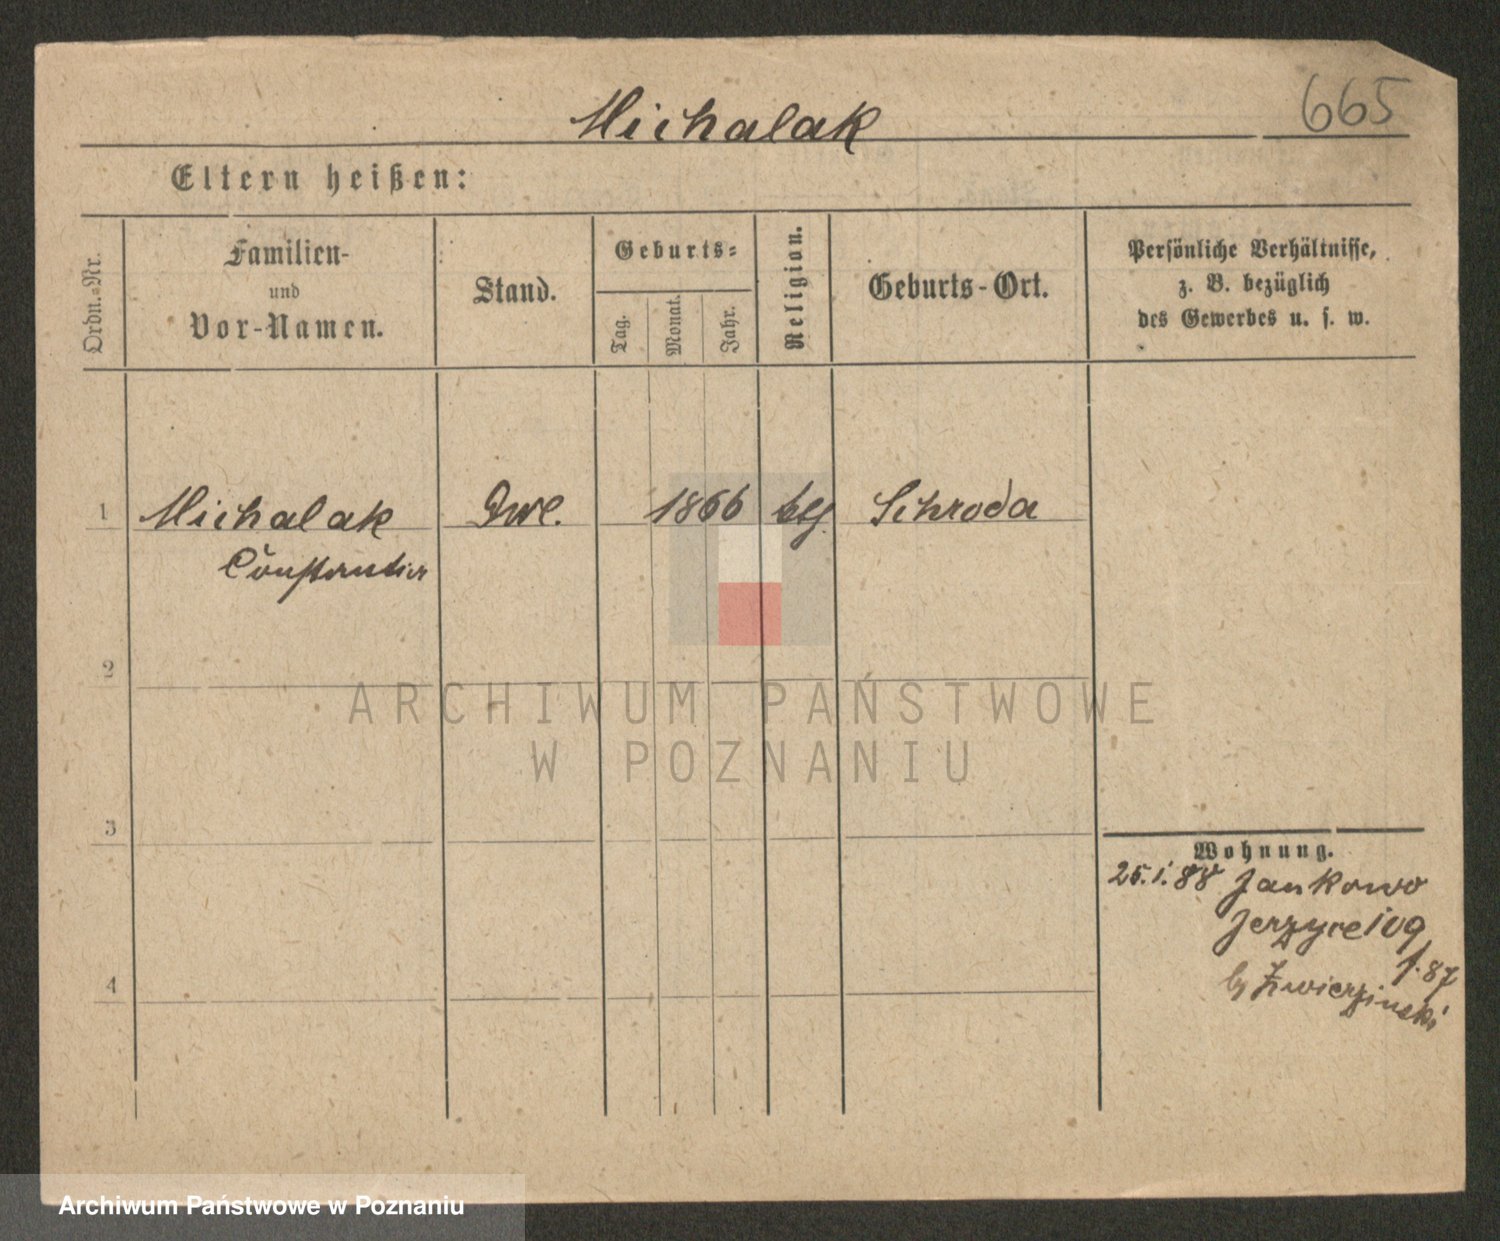 Michalak
665
Eltern heißen:
Ordn.-Nr.
Familien-
und
Vor-Namen.
Stand.
Geburts-
Tag.
Monat.
Jahr.
Religion.
Geburts-Ort.
Persönliche Verhältnisse,
z. B. bezüglich
des Gewerbes u. s. w.
1
Michalak
1866
Schroda
Constantia
2
ARCHIWUM PAŃSTWOWE
W POZNANIU
3
Wohnung.
25.1.88 Jankowo
Jerzyce 109
1.87
Zwierzinski
4
Archiwum Państwowe w Poznaniu